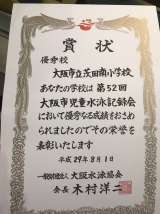 賞状
優秀校
大阪市立茨田南小学校
あなたの学校は第52回
大阪市児童水泳記録会
において優秀なる成績をおさめ
られましたのでその栄誉を
表彰いたします
平成29年8月1
一般社団法人 大阪水泳協会
会長 木村洋二